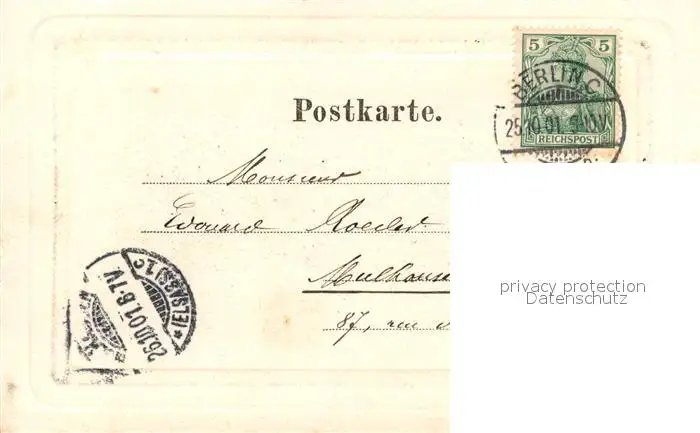 5 5
BERLIN.C.
25.10.01. 9-10V.
REICHSPOST
Postkarte.
Monsieur
Edouard Roeder
Mulhouse
87, rue
privacy protection
Datenschutz
(ELSASS) 1.c
26.10.01. 6-7V